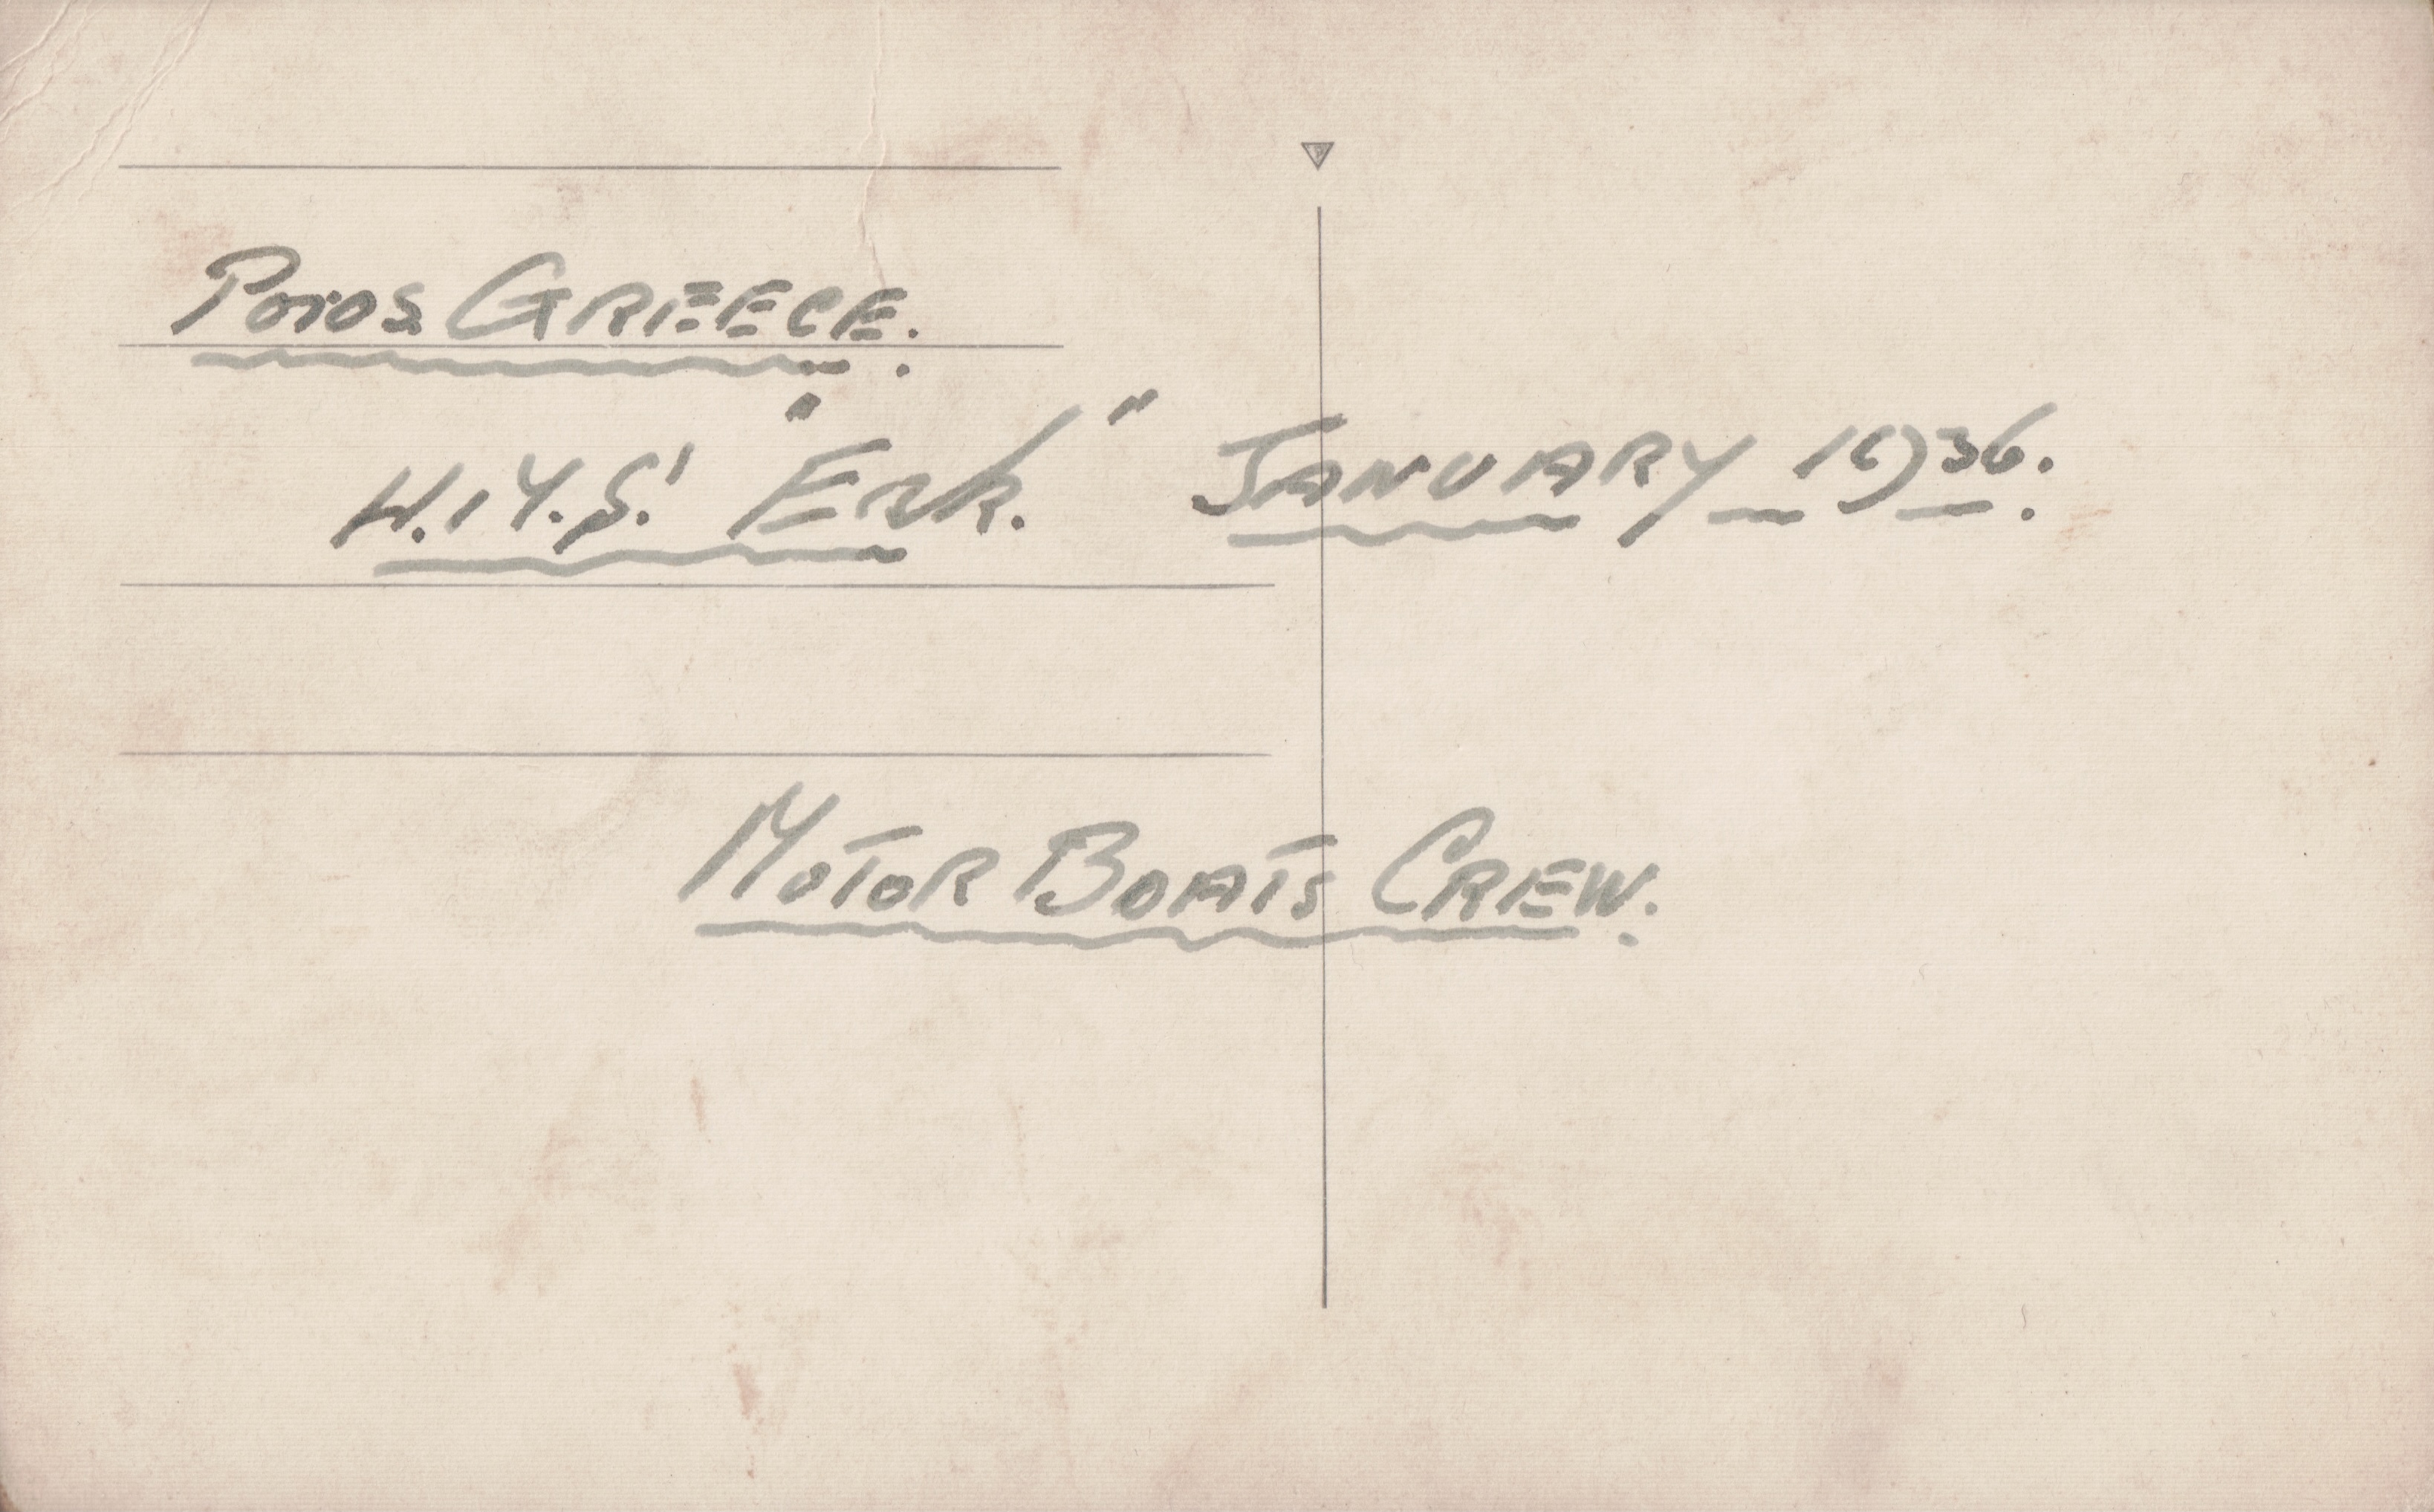 Poros GREECE.
JANUARY 1936.
MOTOR BOATS CREW.